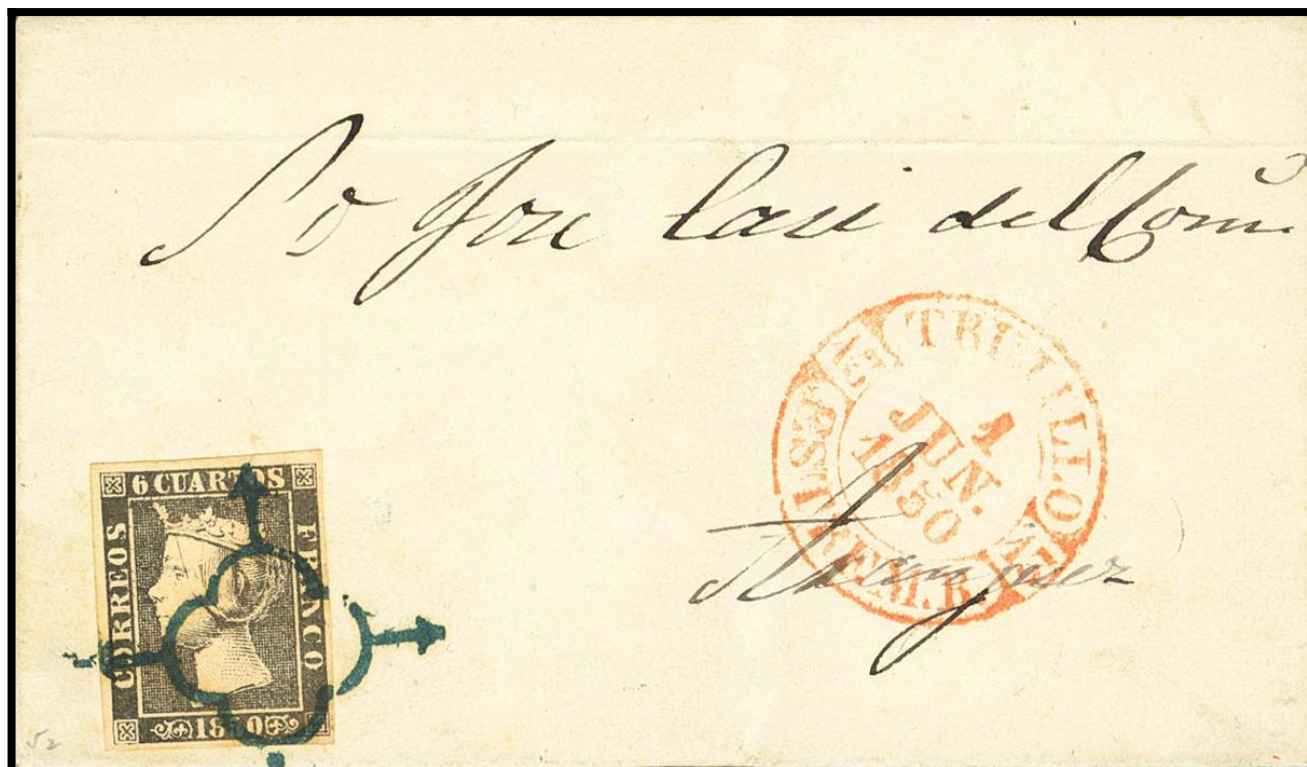 S D José Casi del Com.
TRUJILLO
1
JUN.
1850
ESTREM.B.
Aranjuez
6 CUARTOS
CORREOS
FRANCO
1850
52